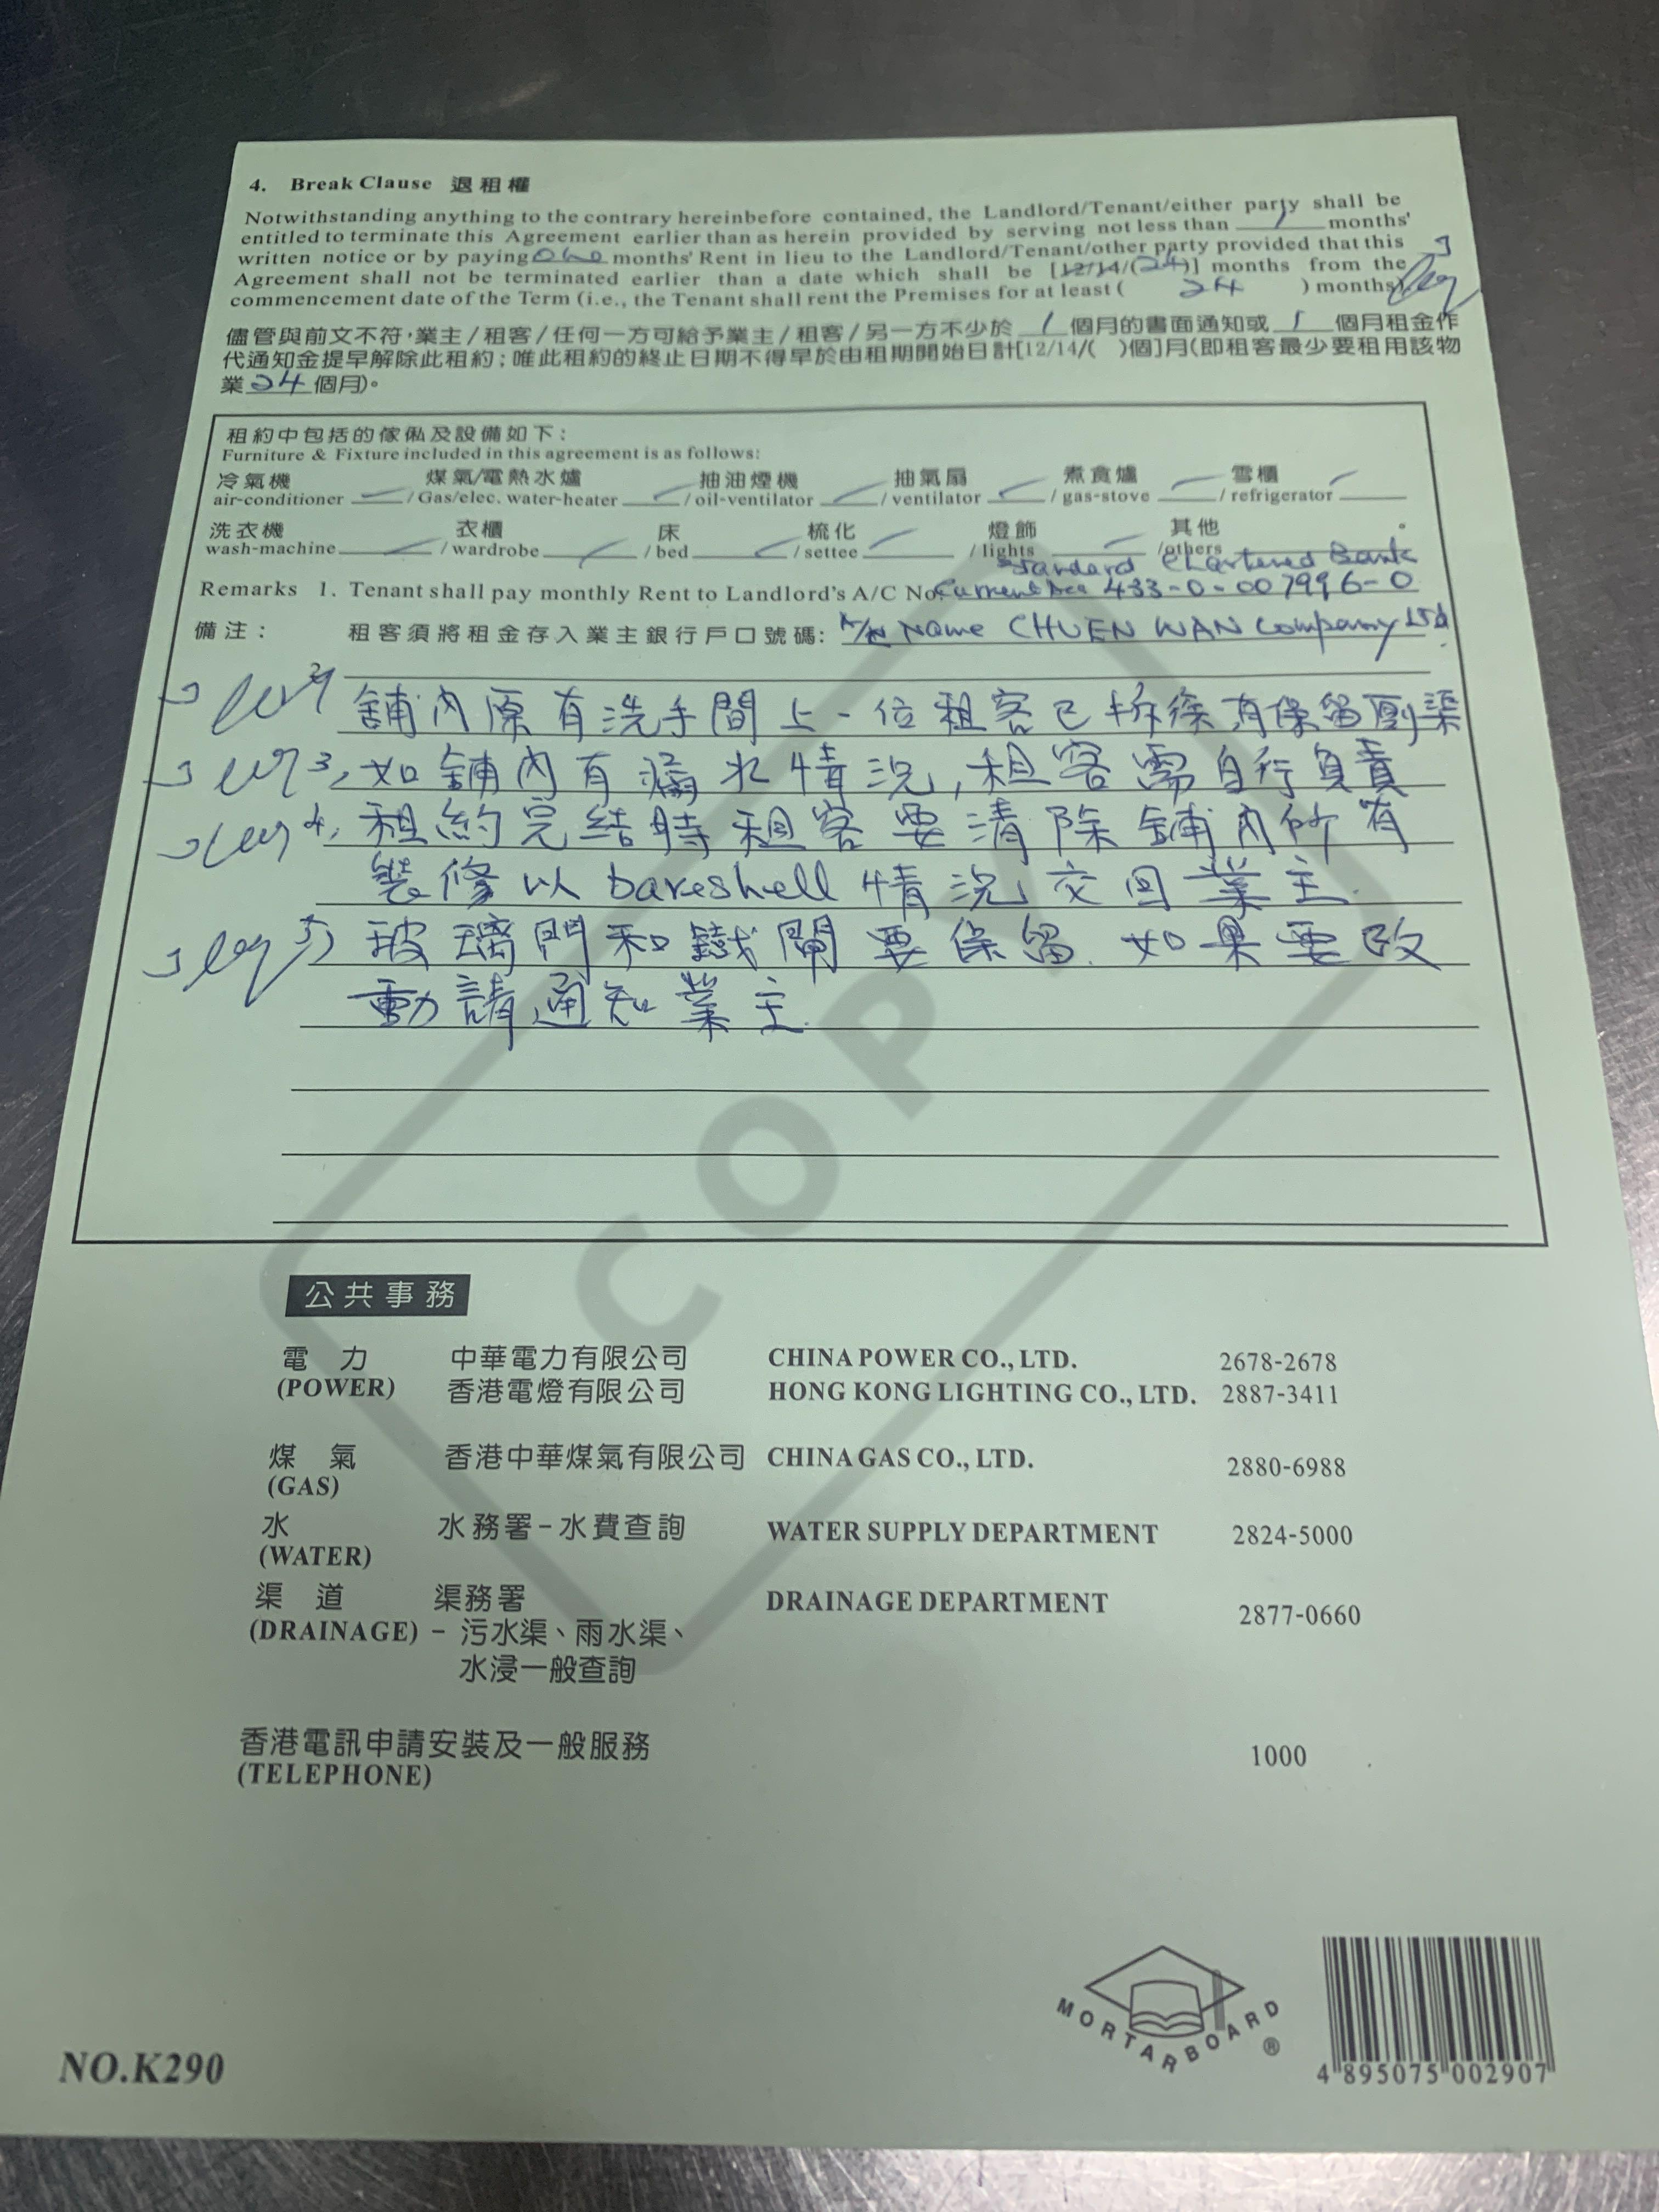 4. Break Clause 退租權
Notwithstanding anything to the contrary hereinbefore contained, the Landlord/Tenant/either party shall be
entitled to terminate this Agreement earlier than as herein provided by serving not less than 1 months'
written notice or by paying one months' Rent in lieu to the Landlord/Tenant/other party provided that this
Agreement shall not be terminated earlier than a date which shall be [12/14/(24)] months from the
commencement date of the Term (i.e., the Tenant shall rent the Premises for at least ( 24 ) months).
儘管與前文不符,業主/租客/任何一方可給予業主/租客/另一方不少於 1 個月的書面通知或 1 個月租金作
代通知金提早解除此租約;唯此租約的終止日期不得早於由租期開始日計[12/14/( )個]月(即租客最少要租用該物
業 24 個月)。
租約中包括的傢俬及設備如下:
Furniture & Fixture included in this agreement is as follows:
冷氣機 煤氣/電熱水爐 抽油煙機 抽氣扇 煮食爐 雪櫃
air-conditioner / Gas/elec. water-heater / oil-ventilator / ventilator / gas-stove / refrigerator
洗衣機 衣櫃 床 梳化 燈飾 其他
wash-machine / wardrobe / bed / settee / lights / others 。
Standard Chartered Bank
Remarks 1. Tenant shall pay monthly Rent to Landlord's A/C No. Current Acc 433-0-007996-0
備注: 租客須將租金存入業主銀行戶口號碼: A/C Name CHUEN WAN Company Ltd.
2, 舖內原有洗手間上一位租客已拆除,有保留廁渠
3, 如舖內有漏水情況,租客需自行負責
4, 租約完結時租客要清除舖內所有
裝修以 bareshell 情況交回業主.
5, 玻璃門和鐵閘要保留.如果要改
動請通知業主.
COPY
公共事務
電力 中華電力有限公司 CHINA POWER CO., LTD. 2678-2678
(POWER) 香港電燈有限公司 HONG KONG LIGHTING CO., LTD. 2887-3411
煤氣 香港中華煤氣有限公司 CHINA GAS CO., LTD. 2880-6988
(GAS)
水 水務署-水費查詢 WATER SUPPLY DEPARTMENT 2824-5000
(WATER)
渠道 渠務署 DRAINAGE DEPARTMENT 2877-0660
(DRAINAGE) - 污水渠、雨水渠、
水浸一般查詢
香港電訊申請安裝及一般服務 1000
(TELEPHONE)
MORTARBOARD ®
NO.K290
4 895075 002907